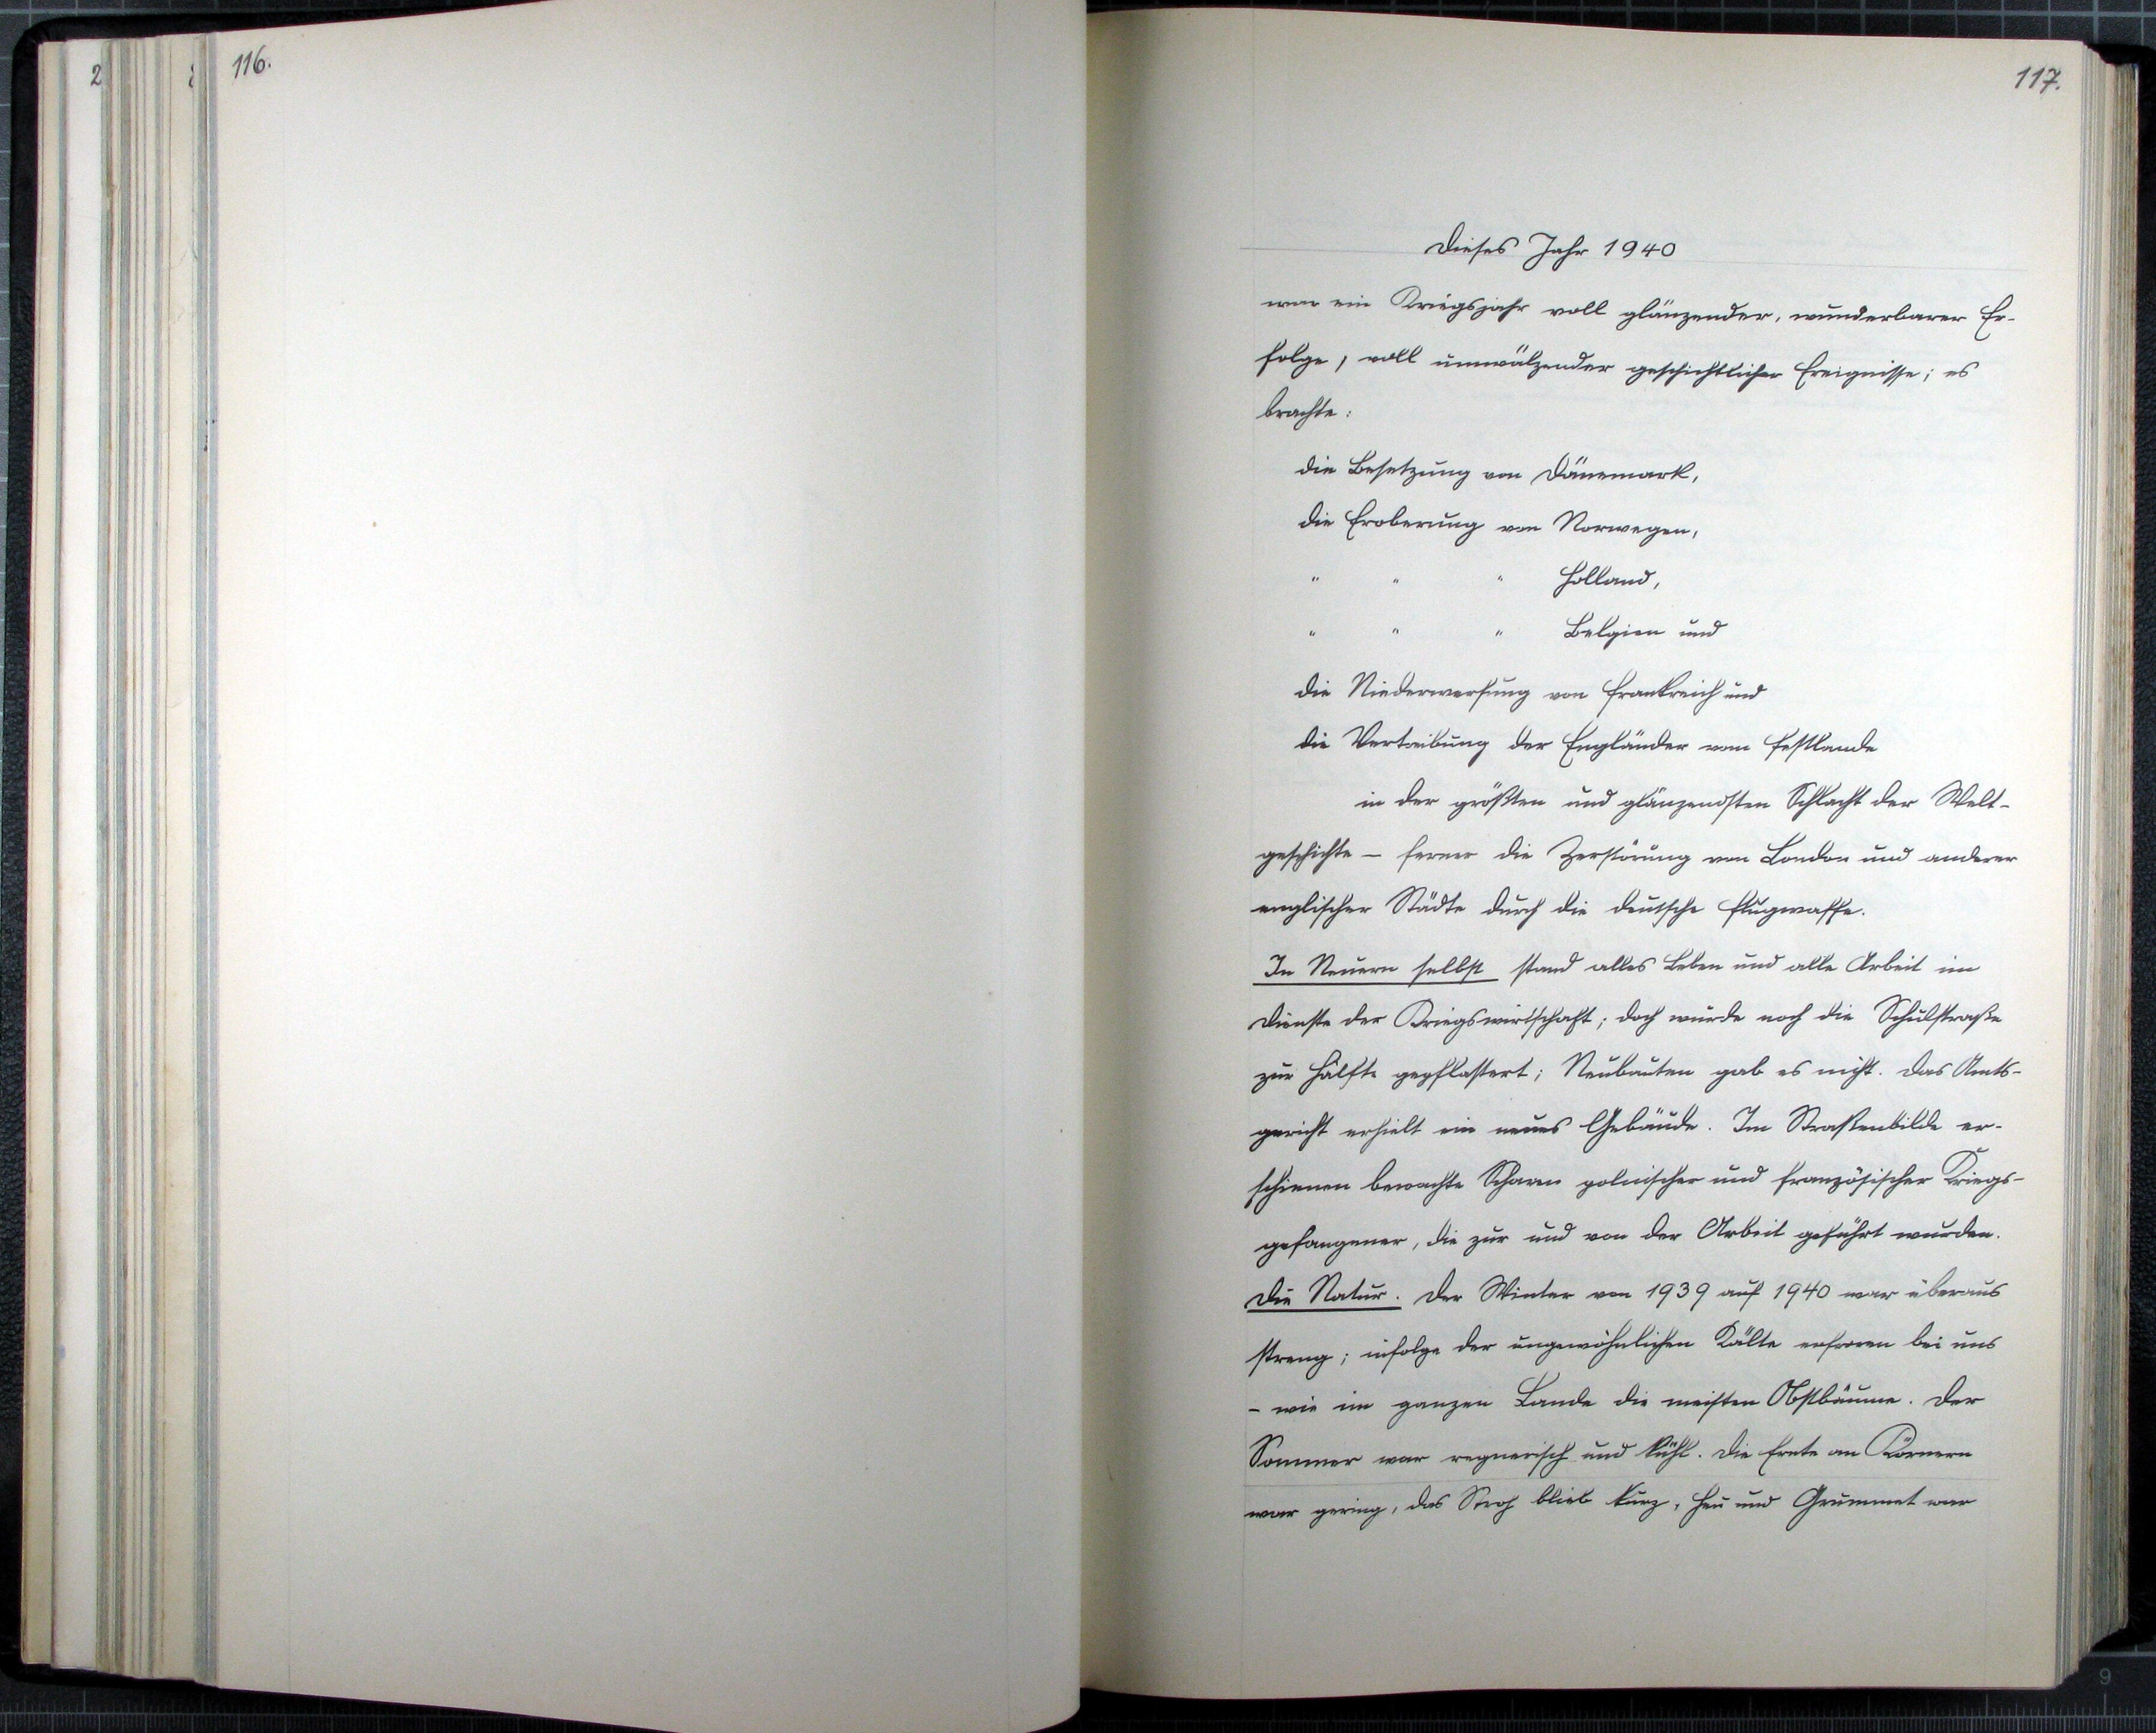 2
116.
117.
Dieses Jahr 1940
war ein Kriegsjahr voll glänzender, wunderbarer Er-
folge, voll umwälzender geschichtlicher Ereignisse; es
brachte:
die Besetzung von Dänemark,
die Eroberung von Norwegen,
" " " Holland,
" " " Belgien und
die Niederwerfung von Frankreich und
die Vertreibung der Engländer vom Festlande
in der größten und glänzendsten Schlacht der Welt-
geschichte – ferner die Zerstörung von London und anderer
englischer Städte durch die deutsche Flugwaffe.
In Neuern selbst stand alles Leben und alle Arbeit im
Dienste der Kriegswirtschaft; doch wurde noch die Schulstraße
zur Hälfte gepflastert; Neubauten gab es nicht. Das Amts-
gericht erhielt ein neues Gebäude. Im Straßenbilde er-
schienen bewachte Scharen polnischer und französischer Kriegs-
gefangener, die zur und von der Arbeit geführt wurden.
Die Natur. Der Winter von 1939 auf 1940 war überaus
streng; infolge der ungewöhnlichen Kälte erfroren bei uns
– wie im ganzen Lande die meisten Obstbäume. Der
Sommer war regnerisch und kühl. Die Ernte an Körnern
war gering, das Stroh blieb kurz, Heu und Grummet war
9